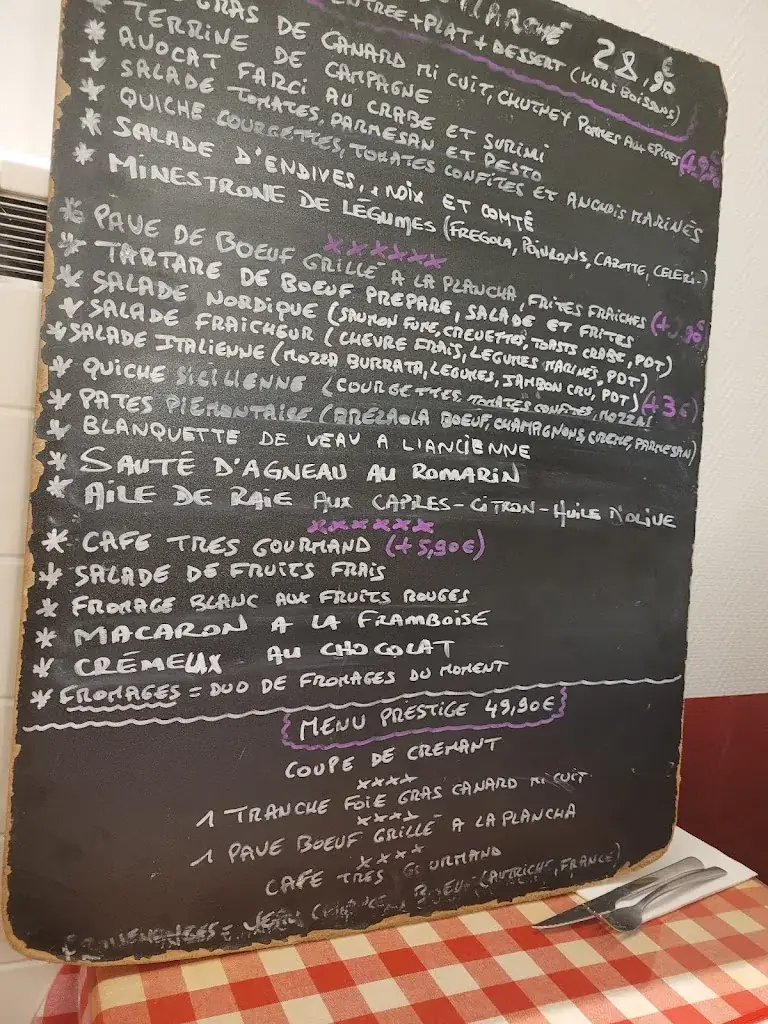 MARCHÉ 28,90€
ENTREE+PLAT+DESSERT (HORS BOISSONS)
* GRAS DE CANARD MI CUIT, CHUTNEY POMMES AUX EPICES
* TERRINE DE CAMPAGNE
* AVOCAT FARCI AU CRABE ET SURIMI
* SALADE TOMATES, PARMESAN ET PESTO
* QUICHE COURGETTES, TOMATES CONFITES ET ANCHOIS MARINÉS
* SALADE D'ENDIVES, NOIX ET COMTÉ
* MINESTRONE DE LÉGUMES (FREGOLA, POIVRONS, CAROTTE, CELERI-)
xxxxxx
* PAVE DE BOEUF GRILLÉ A LA PLANCHA, FRITES FRAICHES
* TARTARE DE BOEUF PREPARE, SALADE ET FRITES
* SALADE NORDIQUE (SAUMON FUME, CREVETTES, TOASTS CRABE, PDT)
* SALADE FRAICHEUR (CHEVRE FRAIS, LEGUMES MARINÉS, PDT)
* SALADE ITALIENNE (MOZZA BURRATA, LEGUMES, JAMBON CRU, PDT) (+3€)
* QUICHE SICILIENNE (COURGETTES, TOMATES CONFITES, MOZZA)
* PATES PIEMONTAISE (BREZAOLA BOEUF, CHAMPAGNONS, CREME, PARMESAN)
* BLANQUETTE DE VEAU A L'ANCIENNE
* SAUTÉ D'AGNEAU AU ROMARIN
* AILE DE RAIE AUX CAPRES-CITRON-HUILE D'OLIVE
xxxxxx
* CAFE TRES GOURMAND (+5,90€)
* SALADE DE FRUITS FRAIS
* FROMAGE BLANC AUX FRUITS ROUGES
* MACARON A LA FRAMBOISE
* CRÉMEUX AU CHOCOLAT
* FROMAGES = DUO DE FROMAGES DU MOMENT
MENU PRESTIGE 49,90€
COUPE DE CREMANT
xxxx
1 TRANCHE FOIE GRAS CANARD MI CUIT
xxxx
1 PAVE BOEUF GRILLÉ A LA PLANCHA
xxxx
CAFE TRES GOURMAND
= VEAU BOEUF (AUTRICHE, FRANCE)